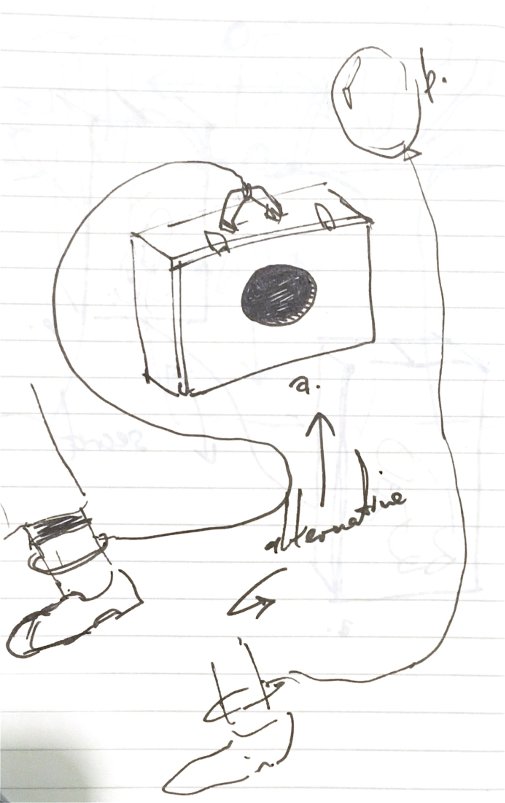 b.
a.
alternative